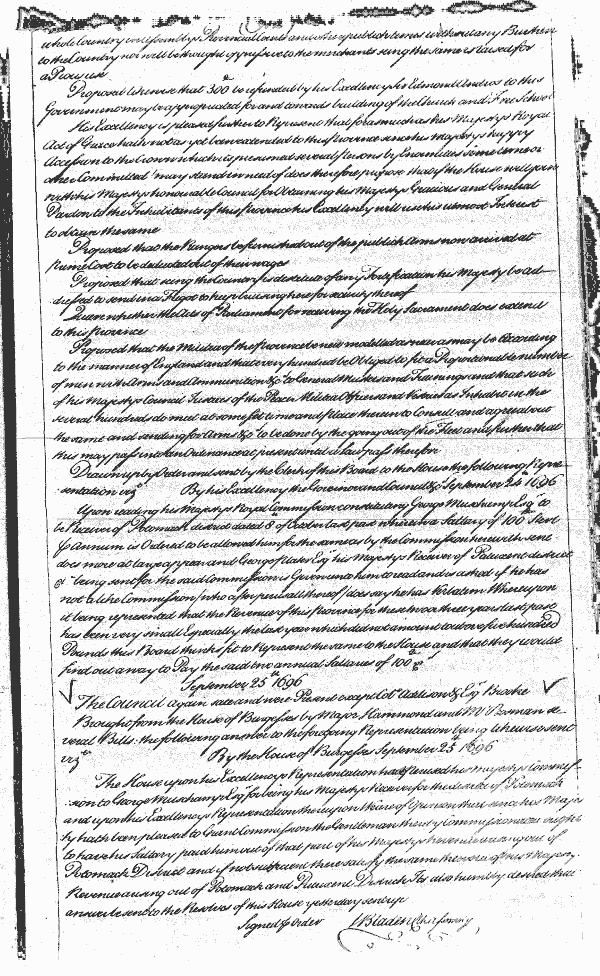 whole Country and Assembly's Provincial Courts and other publick times without any Burthen
to the Country nor will be thought oppressive to the merchants seing the same is raised for
a Pious use
Proposed likewise that 300 be refunded by his Excellency Sr Edmond Andros to this
Government may be appropriated for and towards building of the Church and Free School
His Excellency is pleased further to Represent that forasmuch as her Majestys Royal
Act of Grace hath not as yet been extended to this Province since his majestys happy
Accession to the Crown which is presumed severall persons by Enormities some time or
other Committed may stand in need of does therefore propose that if the House will joyn
with his Majestys honourable Council for Obtaining his Majestys Gracious and General
Pardon to the Inhabitants of this Province his Excellency will use his utmost Interest
to obtain the same
Proposed that the Rangers be furnished out of the publick Arms now arrived at
prime Cost to be deducted out of their wages
Proposed that seing the Country is destitute of any Fortification his Majesty be ad-
dressed to send in a Frigot to keep cruising here for security thereof
Quere whether the Acts of Parliament for receiving the Holy Sacrament does extend
to this Province
Proposed that the Militia of the Province be new modelled as near as may be according
to the manner of England and that every hundred be Obliged to fix a Proportionable number
of men with Arms and Ammunition &ca to General Musters and Trainings and that such
of his Majestys Council Justices of the Peace Militia Officers and Vestries as Inhabit in the
several hundreds do meet at some set time and place therein to Consult and agree about
the same and sending for Arms &ca to be done by the going out of the Fleet and further that
this may pass into an Ordinance at present until a Law pass therefor
Drawn up by Order and sent by the Clerk of this Board to the House the following Repre-
sentation vizt By his Excellency the Governor and Council &c September 24th 1696
Upon reading his Majestys Royal Commission constituting George Muschamp Esqr to
be Receiver of Potomack district dated 8th of October last past wherein a Sallary of 100 Sterl
P Annum is Ordered to be allowed him for the same as by the Commission herewith sent
does more at large appear and George Plater Esqr his Majestys Receiver of Patuxent district
&ca being sent for the said Commission is Given unto him to read and is asked if he has
not a like Commission (who after perusal thereof) does say he has Verbatim Whereupon
it being represented that the Revenue of this Province for these two or three years last past
has been very small Especially the last year which did not amount to above five hundred
Pounds this Board thinks fit to Represent the same to the House and that they would
find out a way to Pay the said two annual Sallaries of 100
September 25th 1696
The Council again sate and were Present except Col Addison & Esqr Brooke
Brought from the House of Burgesses by Major Hammond and Mr Boreman se-
veral Bills the following answer to the foregoing Representation being likewise sent
vizt By the House of Burgesses September 25th 1696
The House upon his Excellencys Representation had perused his Majestys Commis-
sion to George Muschamp Esqr for being his Majestys Receiver for the district of Potomack
and upon his Excellencys Representation thereupon We are of Opinion that since his Majes-
ty hath been pleased to Grant Commission the Gentleman thereby Commissionated ought
to have his Salary paid him out of that part of his Majestys Revenue arising out of
Potomack District and if not sufficient there to satisfy the same then out of his Majestys
Revenue arising out of Potomack and Patuxent Districts Its also humbly desired that
answer be sent to the Resolves of this House yesterday sent up
Signed p Order WBladen Clk